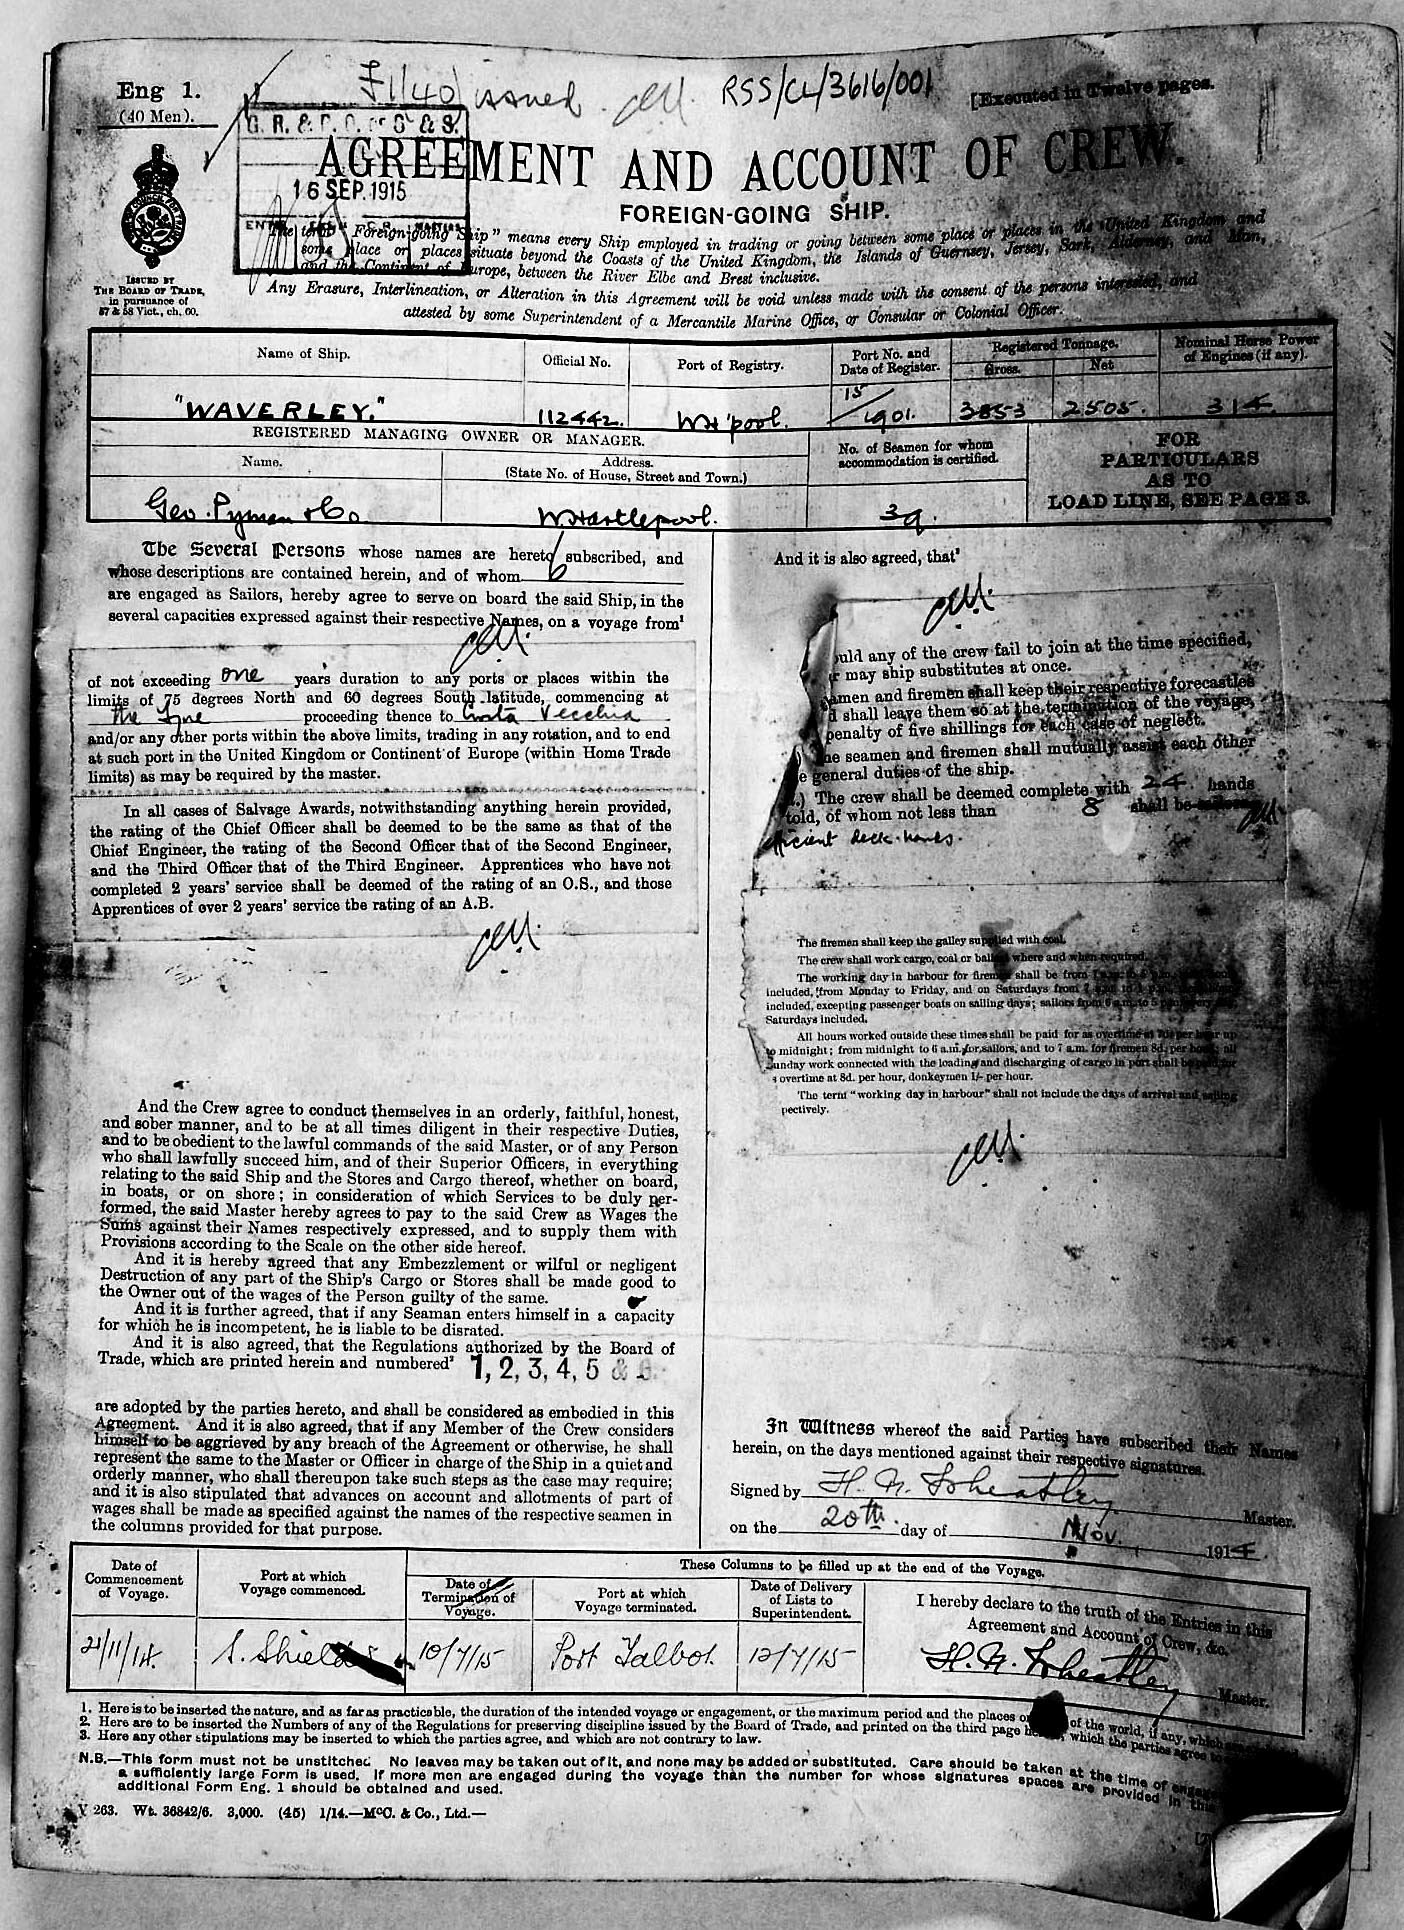 Eng 1.
(40 Men).
£1/40 issued.
RSS/CL/3616/001
[Executed in Twelve pages.
G. R. & S. & S.
16 SEP. 1915
AGREEMENT AND ACCOUNT OF CREW.
FOREIGN-GOING SHIP.
The term "Foreign-going Ship" means every Ship employed in trading or going between some place or places in the United Kingdom and
some place or places situate beyond the Coasts of the United Kingdom, the Islands of Guernsey, Jersey, Sark, Alderney, and Man,
and the Continent of Europe, between the River Elbe and Brest inclusive.
Any Erasure, Interlineation, or Alteration in this Agreement will be void unless made with the consent of the persons interested, and
attested by some Superintendent of a Mercantile Marine Office, or Consular or Colonial Officer.
ISSUED BY
THE BOARD OF TRADE,
in pursuance of
57 & 58 Vict., ch. 60.
Name of Ship.
Official No.
Port of Registry.
Port No. and
Date of Register.
Registered Tonnage.
Gross.
Net
Nominal Horse Power
of Engines (if any).
"WAVERLEY."
112442.
W H'pool.
15/1901.
3853
2505.
314.
REGISTERED MANAGING OWNER OR MANAGER.
Name.
Address.
(State No. of House, Street and Town.)
No. of Seamen for whom
accommodation is certified.
FOR
PARTICULARS
AS TO
LOAD LINE, SEE PAGE 3.
Geo. Pyman & Co.
W Hartlepool.
39.
The Several Persons whose names are hereto subscribed, and
whose descriptions are contained herein, and of whom 6
are engaged as Sailors, hereby agree to serve on board the said Ship, in the
several capacities expressed against their respective Names, on a voyage from¹
of not exceeding one years' duration to any ports or places within the
limits of 75 degrees North and 60 degrees South latitude, commencing at
the Tyne proceeding thence to Civita Vecchia
and/or any other ports within the above limits, trading in any rotation, and to end
at such port in the United Kingdom or Continent of Europe (within Home Trade
limits) as may be required by the master.
In all cases of Salvage Awards, notwithstanding anything herein provided,
the rating of the Chief Officer shall be deemed to be the same as that of the
Chief Engineer, the rating of the Second Officer that of the Second Engineer,
and the Third Officer that of the Third Engineer. Apprentices who have not
completed 2 years' service shall be deemed of the rating of an O.S., and those
Apprentices of over 2 years' service the rating of an A.B.
And the Crew agree to conduct themselves in an orderly, faithful, honest,
and sober manner, and to be at all times diligent in their respective Duties,
and to be obedient to the lawful commands of the said Master, or of any Person
who shall lawfully succeed him, and of their Superior Officers, in everything
relating to the said Ship and the Stores and Cargo thereof, whether on board,
in boats, or on shore; in consideration of which Services to be duly per-
formed, the said Master hereby agrees to pay to the said Crew as Wages the
Sums against their Names respectively expressed, and to supply them with
Provisions according to the Scale on the other side hereof.
And it is hereby agreed that any Embezzlement or wilful or negligent
Destruction of any part of the Ship's Cargo or Stores shall be made good to
the Owner out of the wages of the Person guilty of the same.
And it is further agreed, that if any Seaman enters himself in a capacity
for which he is incompetent, he is liable to be disrated.
And it is also agreed, that the Regulations authorized by the Board of
Trade, which are printed herein and numbered² 1, 2, 3, 4, 5 & 6.
are adopted by the parties hereto, and shall be considered as embodied in this
Agreement. And it is also agreed, that if any Member of the Crew considers
himself to be aggrieved by any breach of the Agreement or otherwise, he shall
represent the same to the Master or Officer in charge of the Ship in a quiet and
orderly manner, who shall thereupon take such steps as the case may require;
and it is also stipulated that advances on account and allotments of part of
wages shall be made as specified against the names of the respective seamen in
the columns provided for that purpose.
And it is also agreed, that³
ould any of the crew fail to join at the time specified,
r may ship substitutes at once.
amen and firemen shall keep their respective forecastles
d shall leave them so at the termination of the voyage,
penalty of five shillings for each case of neglect.
he seamen and firemen shall mutually assist each other
e general duties of the ship.
.) The crew shall be deemed complete with 24 hands
told, of whom not less than 8 shall be sailors
efficient deck hands.
The firemen shall keep the galley supplied with coal.
The crew shall work cargo, coal or ballast where and when required.
The working day in harbour for firemen shall be from 7 a.m. to 5 p.m.
included, from Monday to Friday, and on Saturdays from 7 a.m. to 1 p.m.
included, excepting passenger boats on sailing days; sailors from 6 a.m. to 5 p.m.
Saturdays included.
All hours worked outside these times shall be paid for as overtime at 7d. per hour up
to midnight; from midnight to 6 a.m. for sailors, and to 7 a.m. for firemen 8d. per hour; all
Sunday work connected with the loading and discharging of cargo in port shall be paid for
s overtime at 8d. per hour, donkeymen 1/- per hour.
The term "working day in harbour" shall not include the days of arrival and sailing
pectively.
In Witness whereof the said Parties have subscribed their Names
herein, on the days mentioned against their respective signatures.
Signed by H. N. Wheatley Master.
on the 20th day of Nov. 1914.
Date of
Commencement
of Voyage.
Port at which
Voyage commenced.
These Columns to be filled up at the end of the Voyage.
Date of
Termination of
Voyage.
Port at which
Voyage terminated.
Date of Delivery
of Lists to
Superintendent.
I hereby declare to the truth of the Entries in this
Agreement and Account of Crew, &c.
21/11/14.
S. Shields
10/7/15
Port Talbot.
12/7/15
H. N. Wheatley Master.
1. Here is to be inserted the nature, and as far as practicable, the duration of the intended voyage or engagement, or the maximum period and the places or of the world, if any, which
2. Here are to be inserted the Numbers of any of the Regulations for preserving discipline issued by the Board of Trade, and printed on the third page which the parties agree to
3. Here any other stipulations may be inserted to which the parties agree, and which are not contrary to law.
N.B.—This form must not be unstitched. No leaves may be taken out of it, and none may be added or substituted. Care should be taken at the time of
a sufficiently large Form is used. If more men are engaged during the voyage than the number for whose signatures spaces are provided in this
additional Form Eng. 1 should be obtained and used.
V 263. Wt. 36842/6. 3,000. (45) 1/14.—McC. & Co., Ltd.—